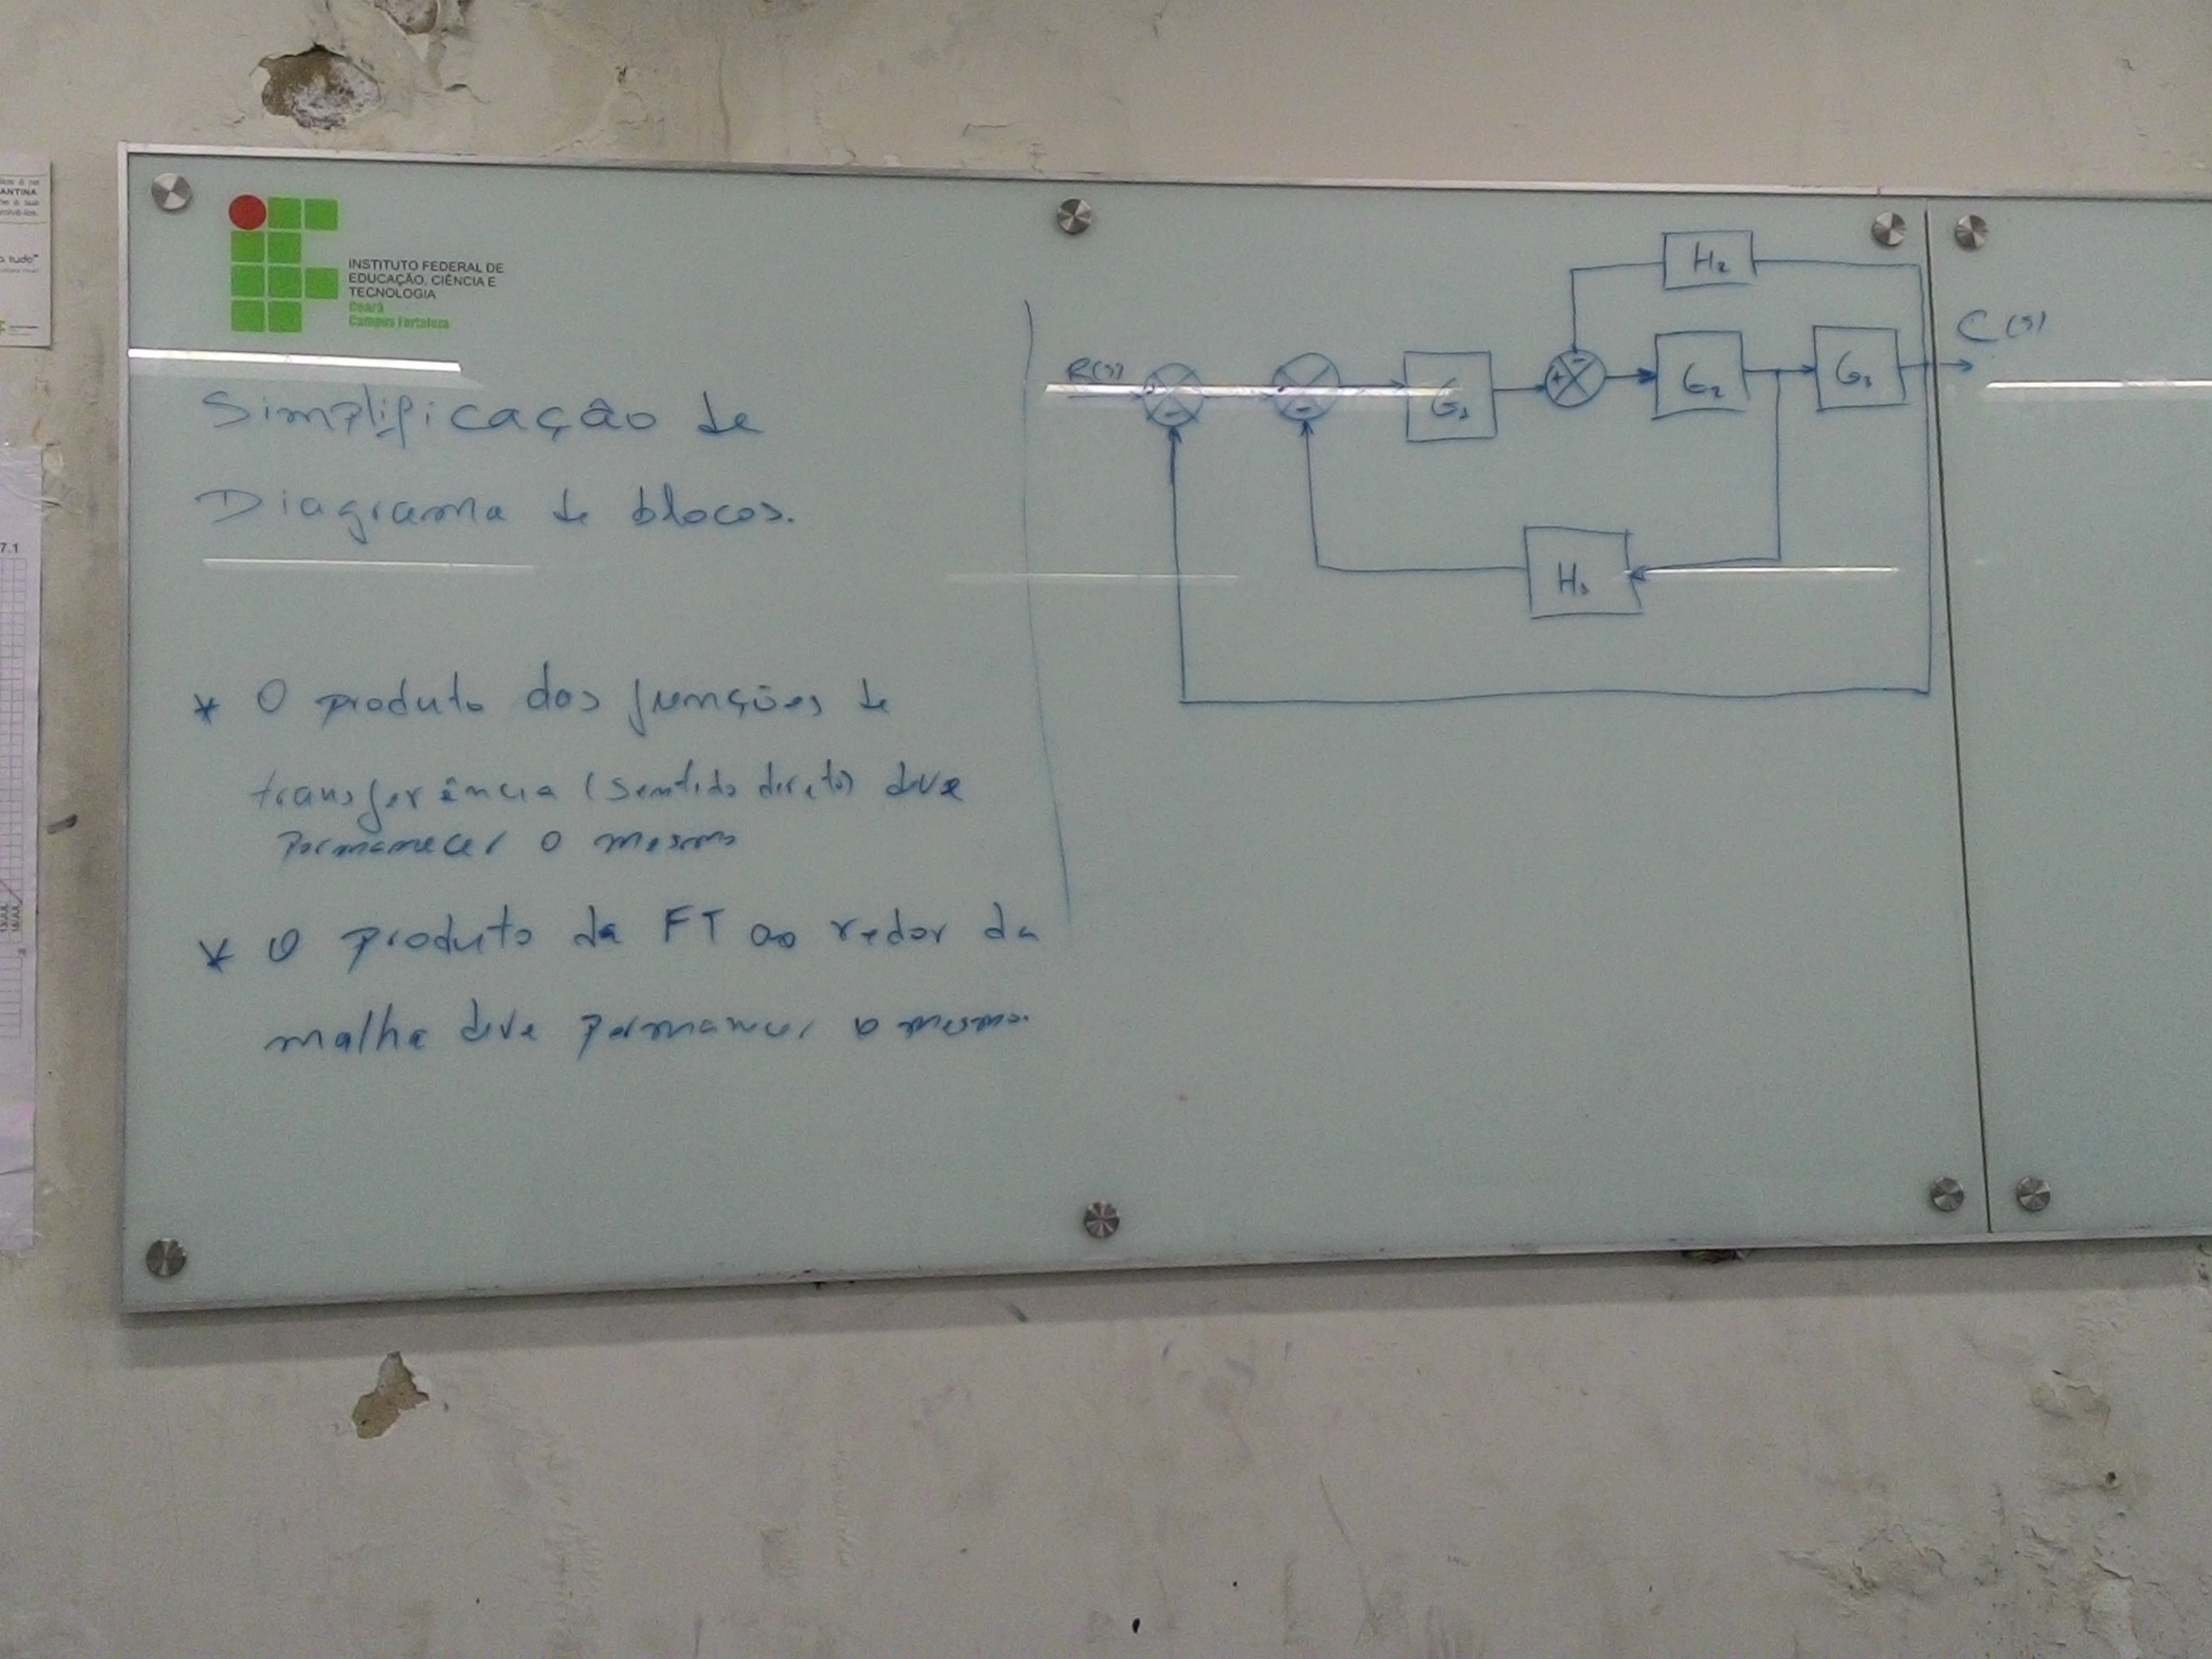 INSTITUTO FEDERAL DE
EDUCAÇÃO, CIÊNCIA E
TECNOLOGIA
Ceará
Campus Fortaleza
Simplificação de
Diagrama de blocos.
* O produto das funções de
transferência (sentido direto) deve
permanecer o mesmo
* O produto da FT ao redor da
malha deve permanecer o mesmo.
H2
C(s)
R(s)
+
-
-
G1
+
-
G2
G3
H1
ANTINA
tudo"
7.1